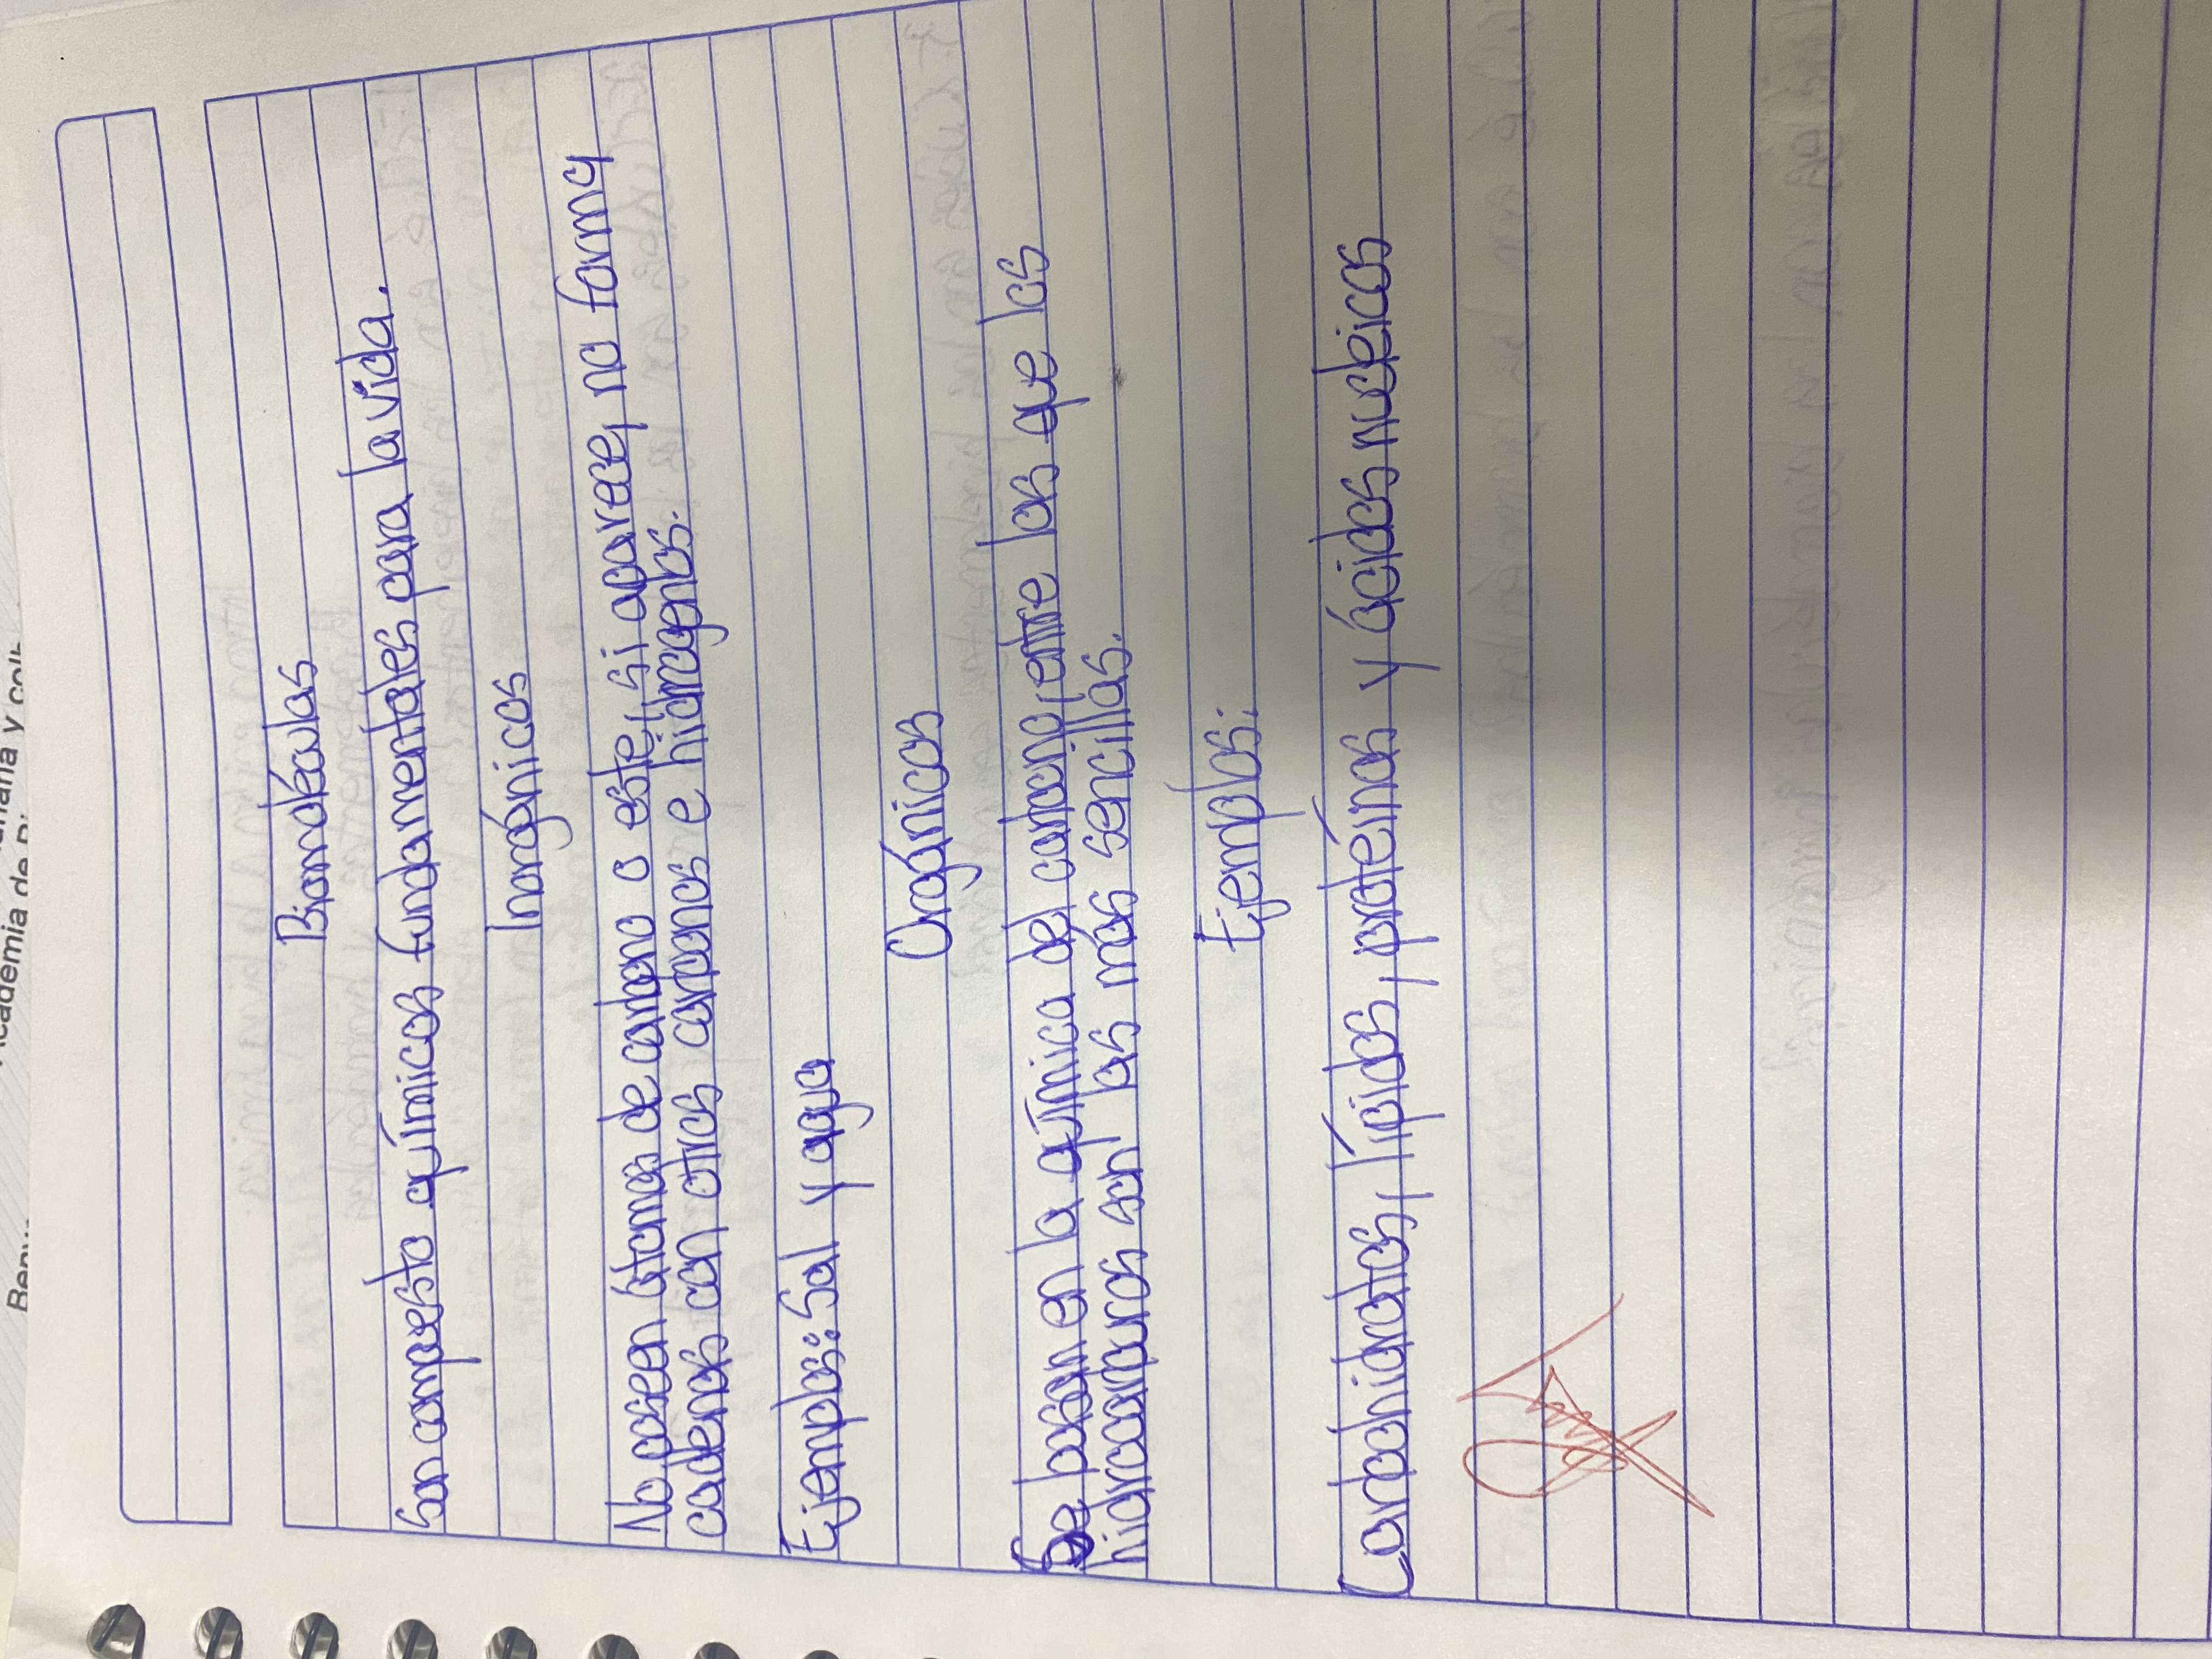 Biomoléculas
Son compuesto químicos fundamentales para la vida.
Inorgánicos
No poseen átomos de carbono o este, si aparece, no forma
cadenas con otros carbonos e hidrogentos.
Ejemplos: Sal y agua
Orgánicos
Se basan en la química del carbono, entre los que los
hidrocarpuros son las más sencillas.
Ejemplos:
Carbohidratos, lípidos, proteínas y ácidos nucleicos